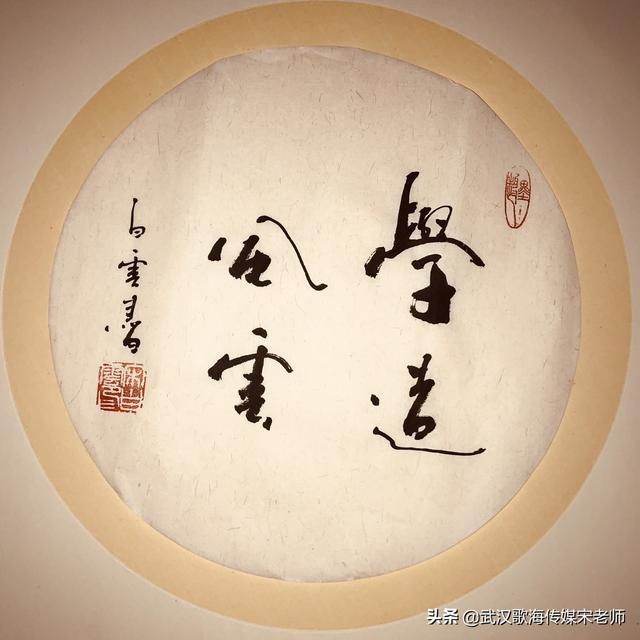 學造
風雲
白雲書
头条 @武汉歌海传媒宋老师